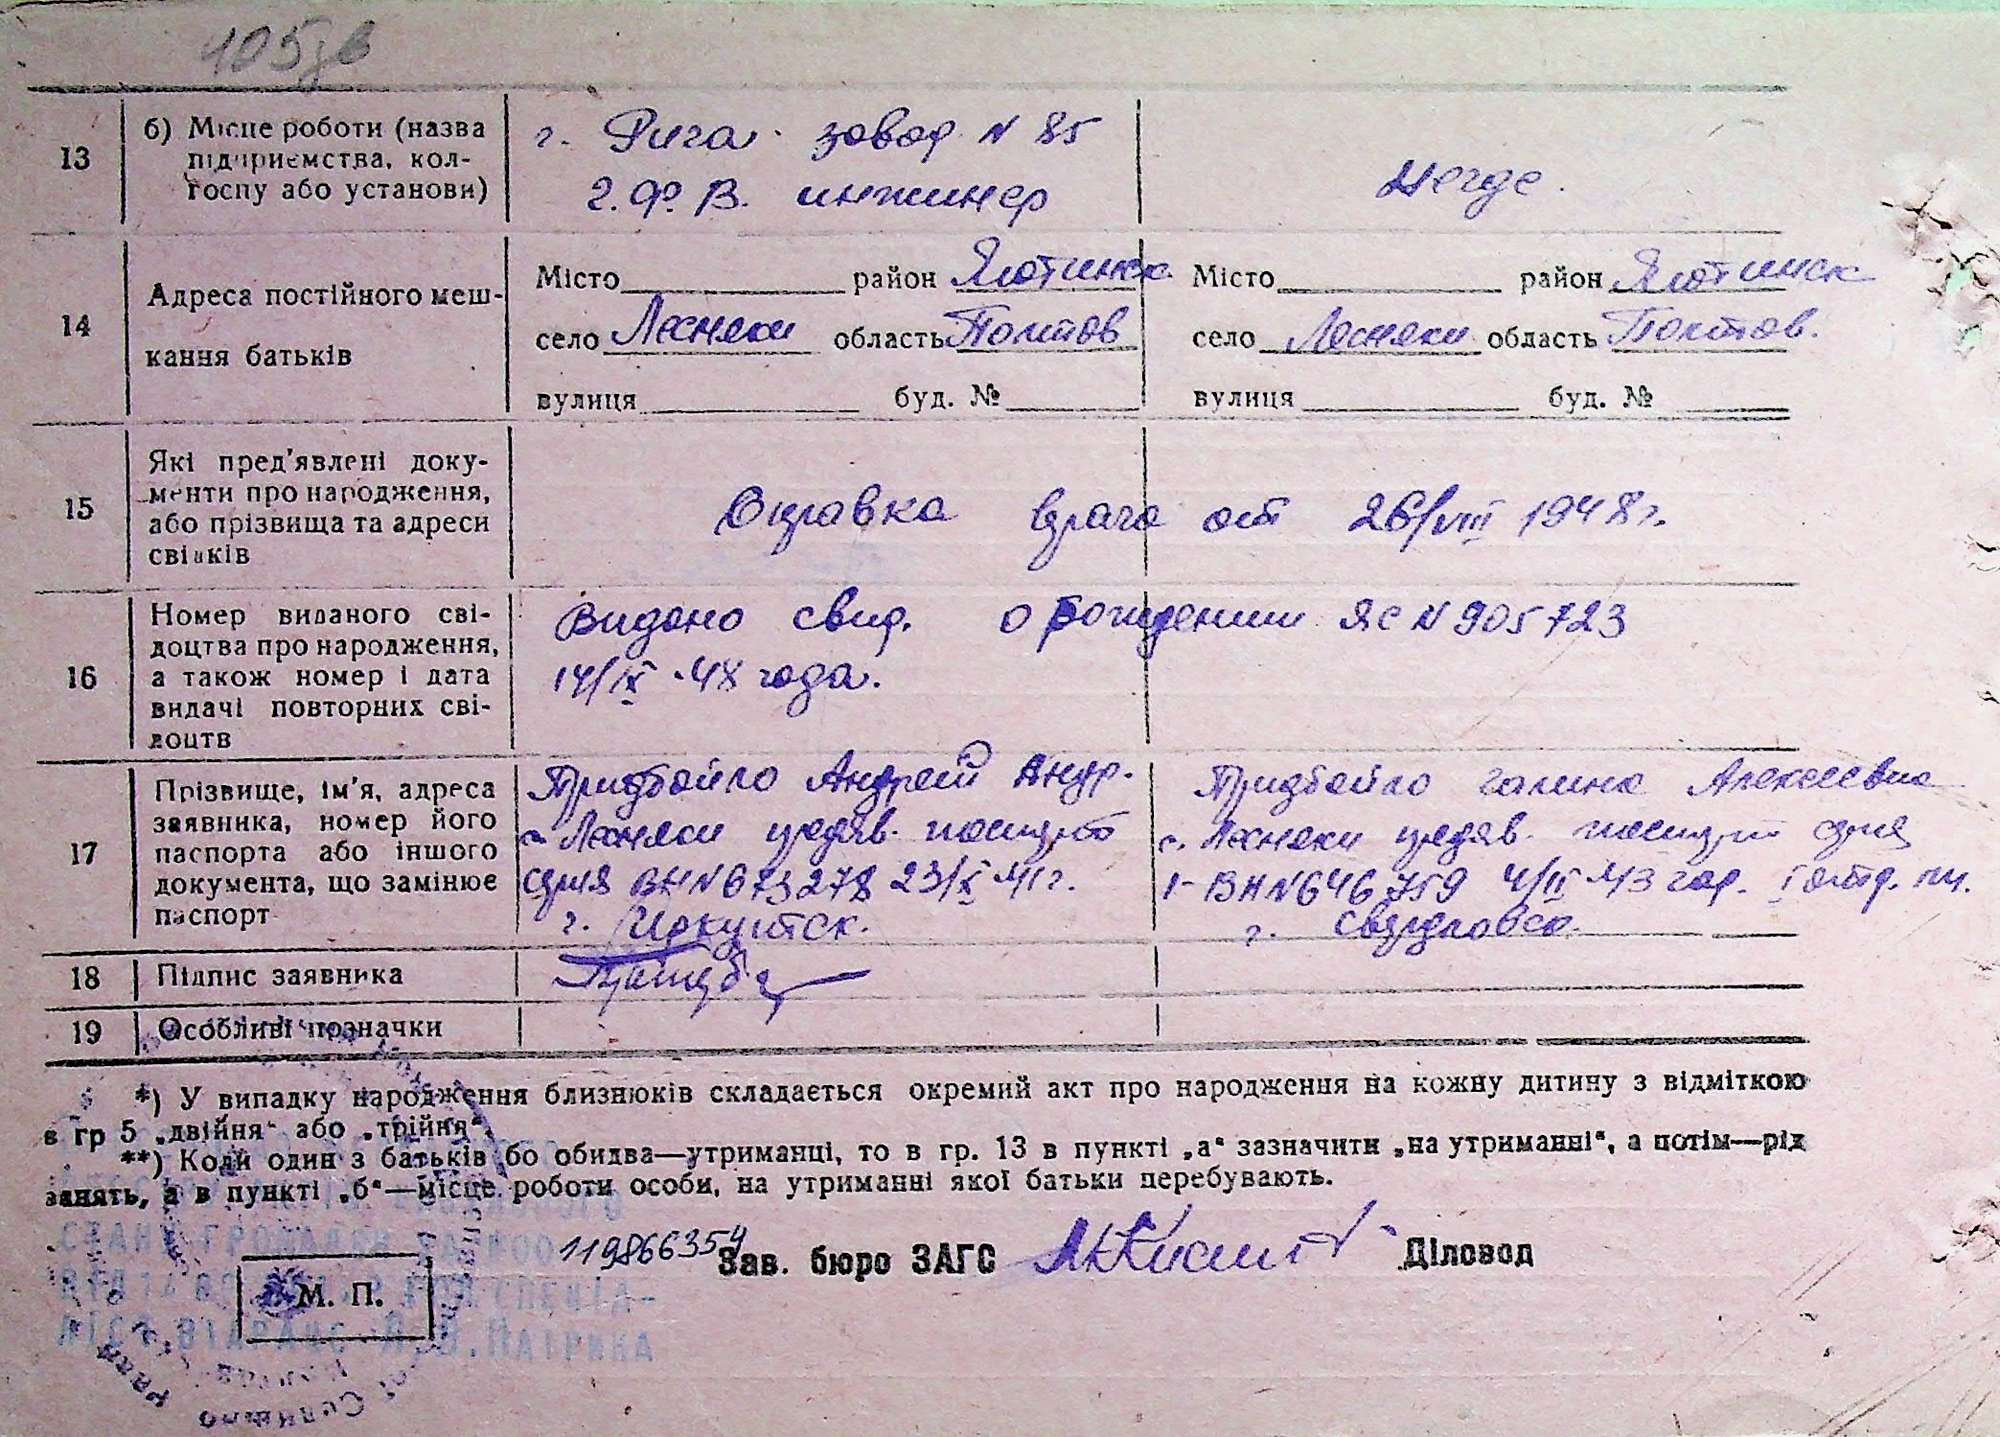 105зв
13
б) Місце роботи (назва
підприємства, кол-
госпу або установи)
г. Рига. завод N 85
Г.Ф.В. инжинер
Негде.
14
Адреса постійного меш-
кання батьків
Місто район Яготинск
село Лесняки область Полтов
вулиця буд. №
Місто район Яготинск
село Лесняки область Полтов.
вулиця буд. №
15
Які пред'явлені доку-
менти про народження,
або прізвища та адреси
свідків
Справка врача от 26/VIII 1948 г.
16
Номер виданого сві-
доцтва про народження,
а також номер і дата
видачі повторних сві-
доцтв
Видано свид. о рождении ЯС N 905723
14/IX-48 года.
17
Прізвище, ім'я, адреса
заявника, номер його
паспорта або іншого
документа, що замінює
паспорт
Придбайло Андрей Андр.
с. Лесняки предяв. паспорт
серия ВН N 673278 23/X 41г.
г. Иркутск.
Придбайло Галина Алексеевна
с. Лесняки предяв. паспорт серия
I-ВН N 646759 4/II 43 год. I отд. м.
г. Свердловск.
18
Підпис заявника
19
Особливі позначки
*) У випадку народження близнюків складається окремий акт про народження на кожну дитину з відміткою
в гр 5 „двійня“ або „трійня“.
**) Коли один з батьків бо обидва—утриманці, то в гр. 13 в пункті „а“ зазначити „на утриманні“, а потім—рід
занять, а в пункті „б“—місце роботи особи, на утриманні якої батьки перебувають.
119866354
Зав. бюро ЗАГС
Діловод
М. П.